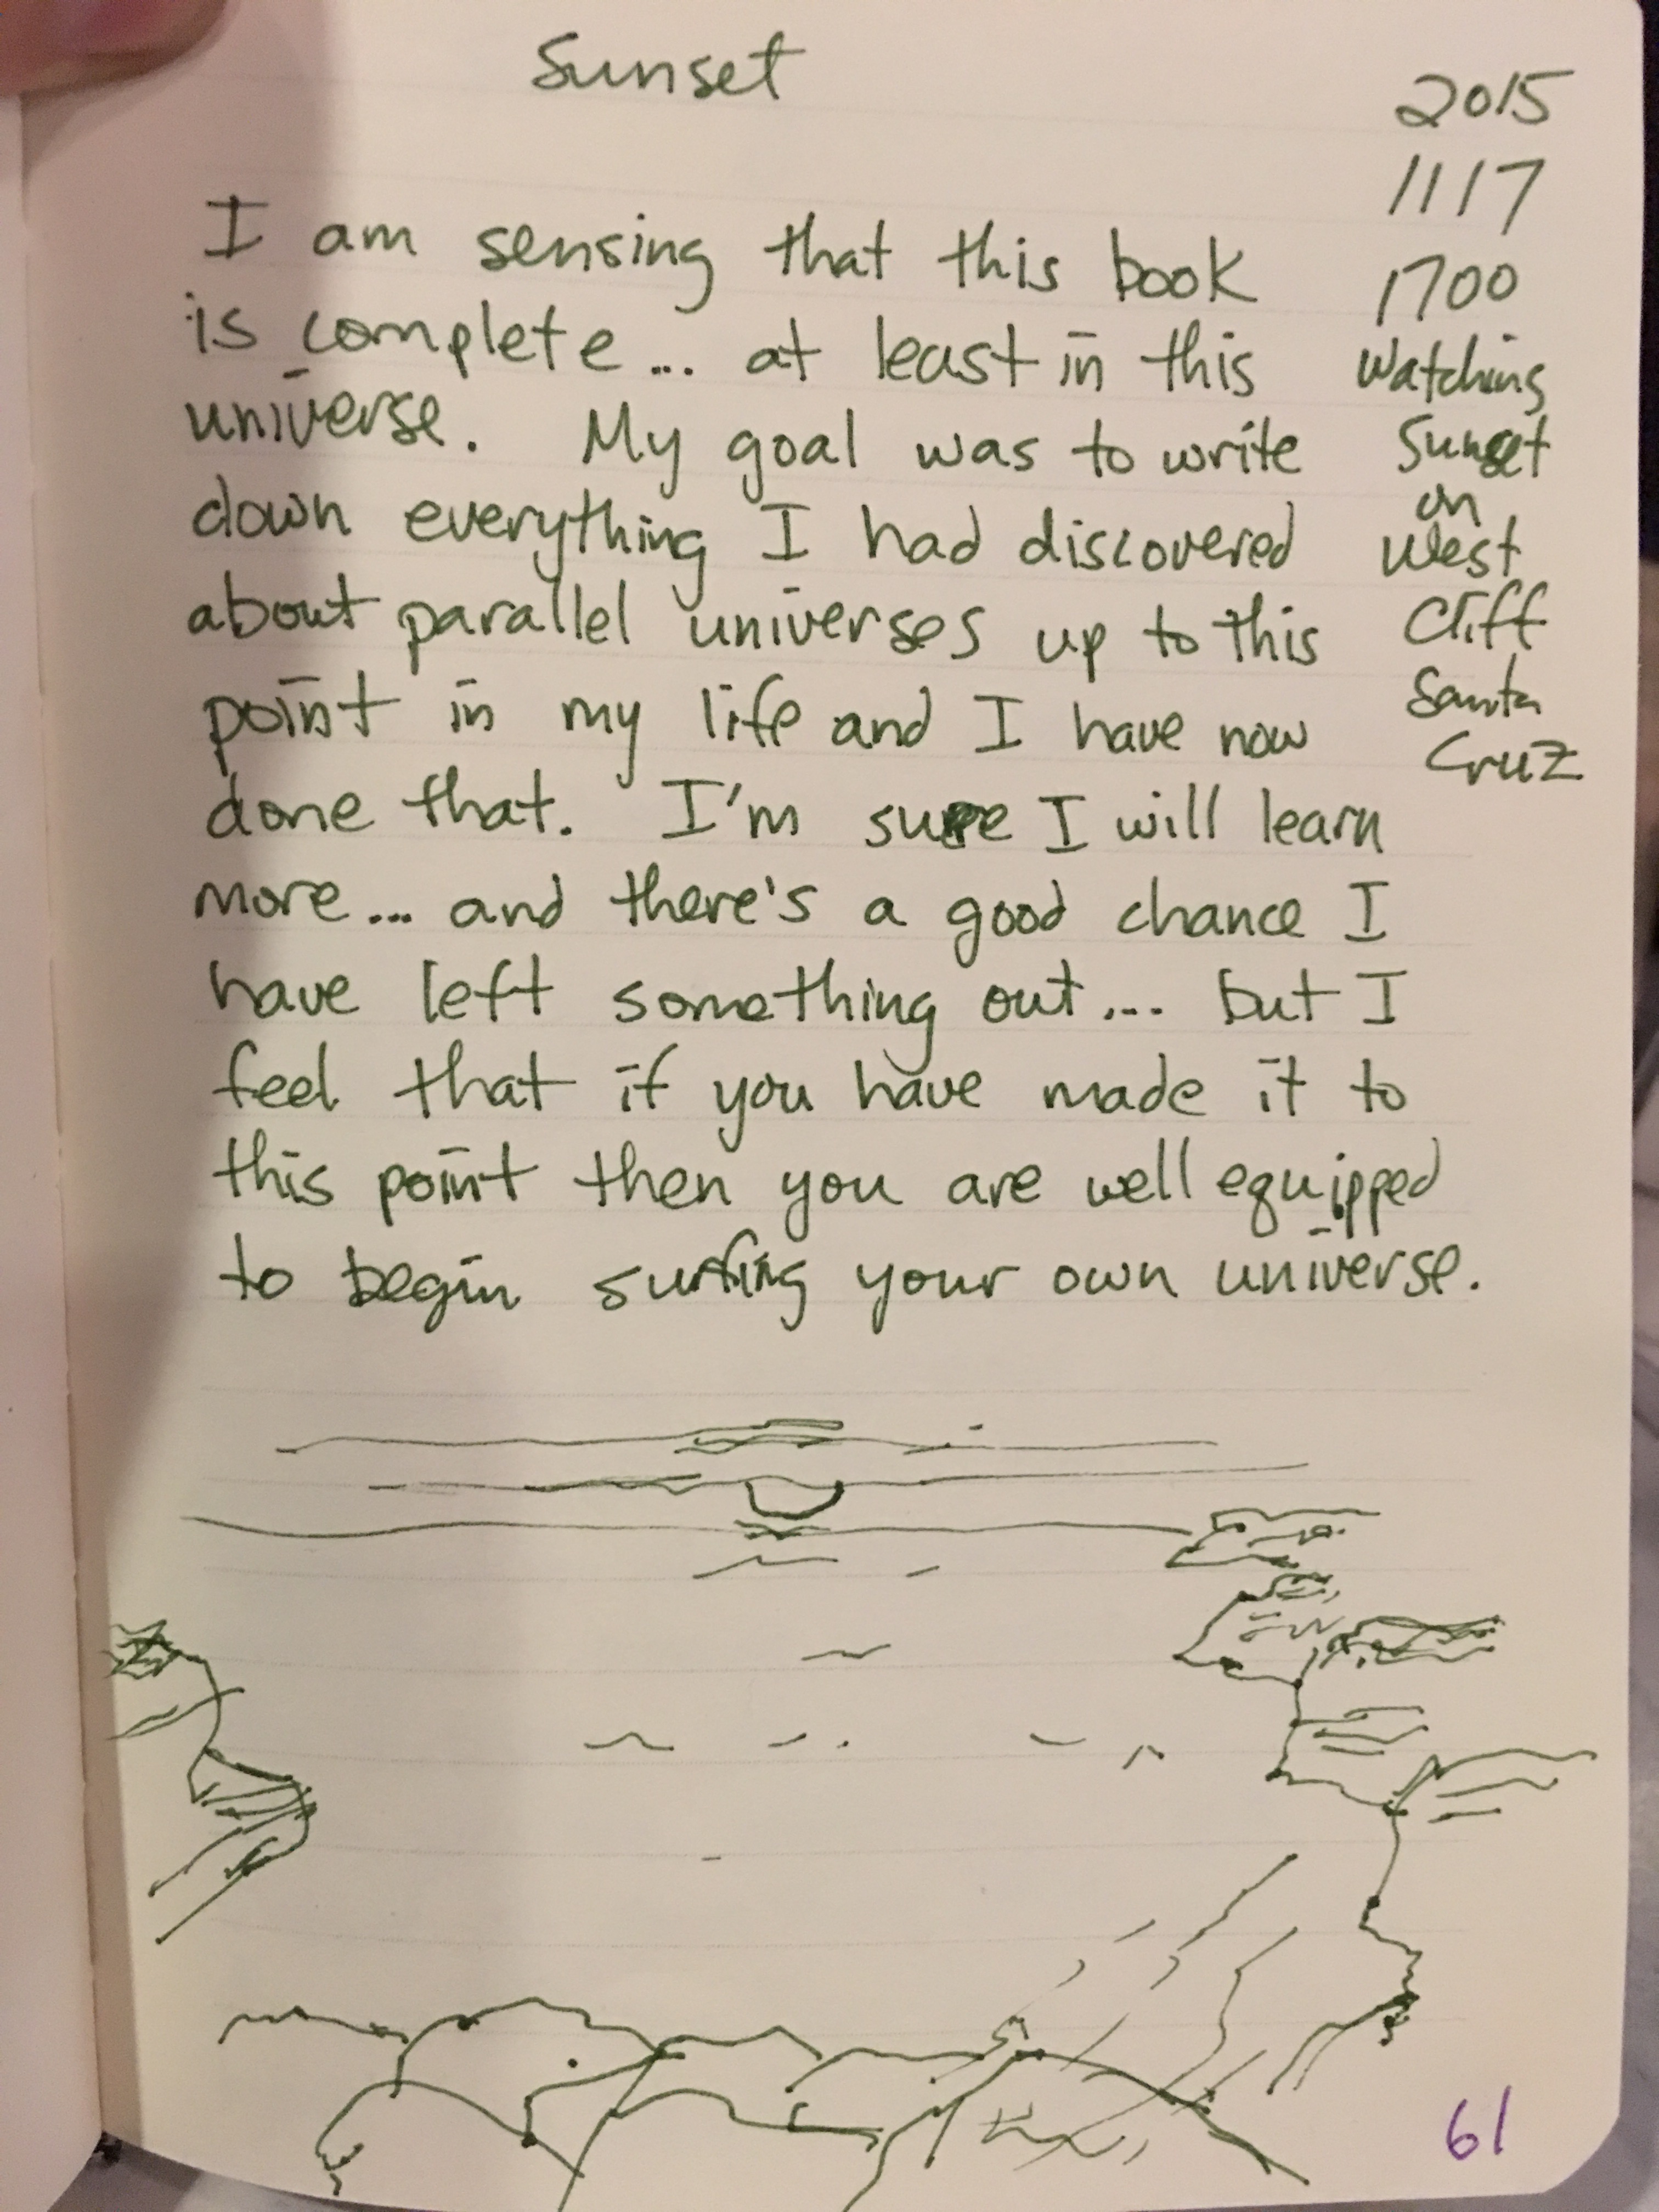 Sunset
2015
1117
1700
Watching
Sunset
on
West
Cliff
Santa
Cruz
I am sensing that this book
is complete... at least in this
universe. My goal was to write
down everything I had discovered
about parallel universes up to this
point in my life and I have now
done that. I'm sure I will learn
more... and there's a good chance I
have left something out... but I
feel that if you have made it to
this point then you are well equipped
to begin surfing your own universe.
61